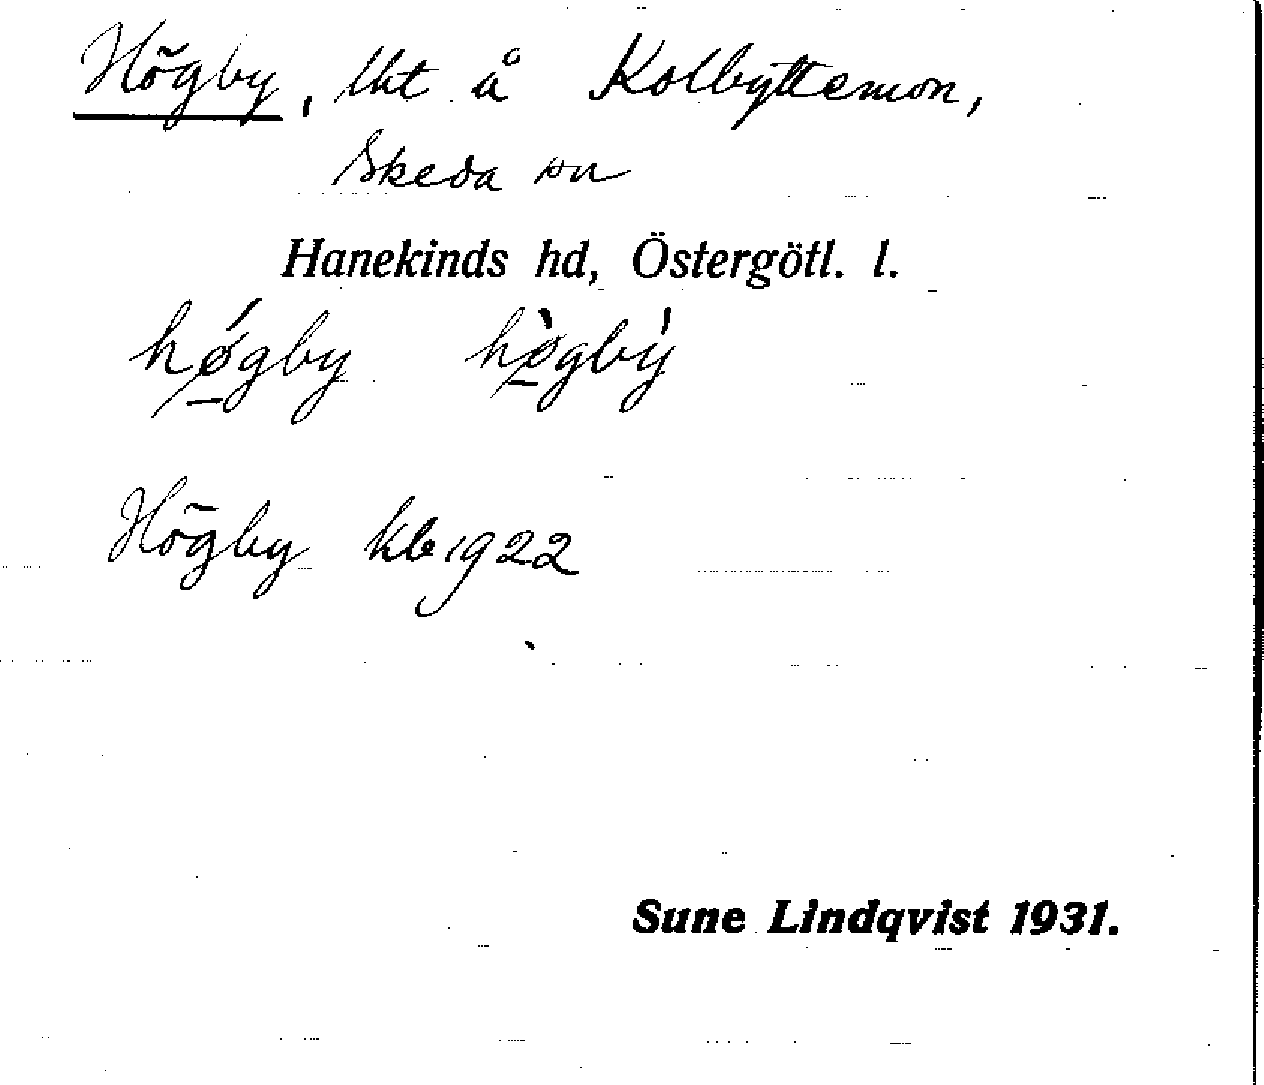 Högby, lht å Kolbyttemon,
Skeda sn
Hanekinds hd, Östergötl. l.
hǿgby hø̀gbỳ
Högby kb 1922
Sune Lindqvist 1931.